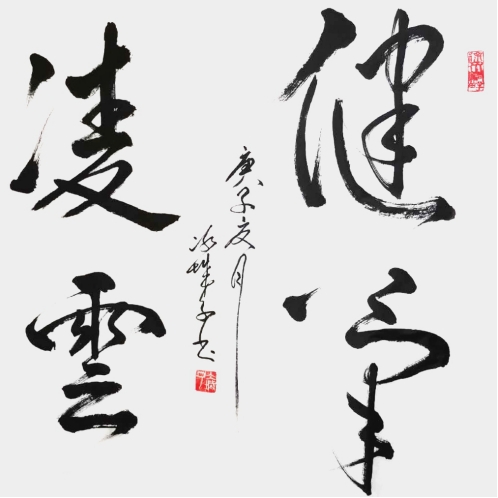 健筆
凌雲
庚子夏月
书